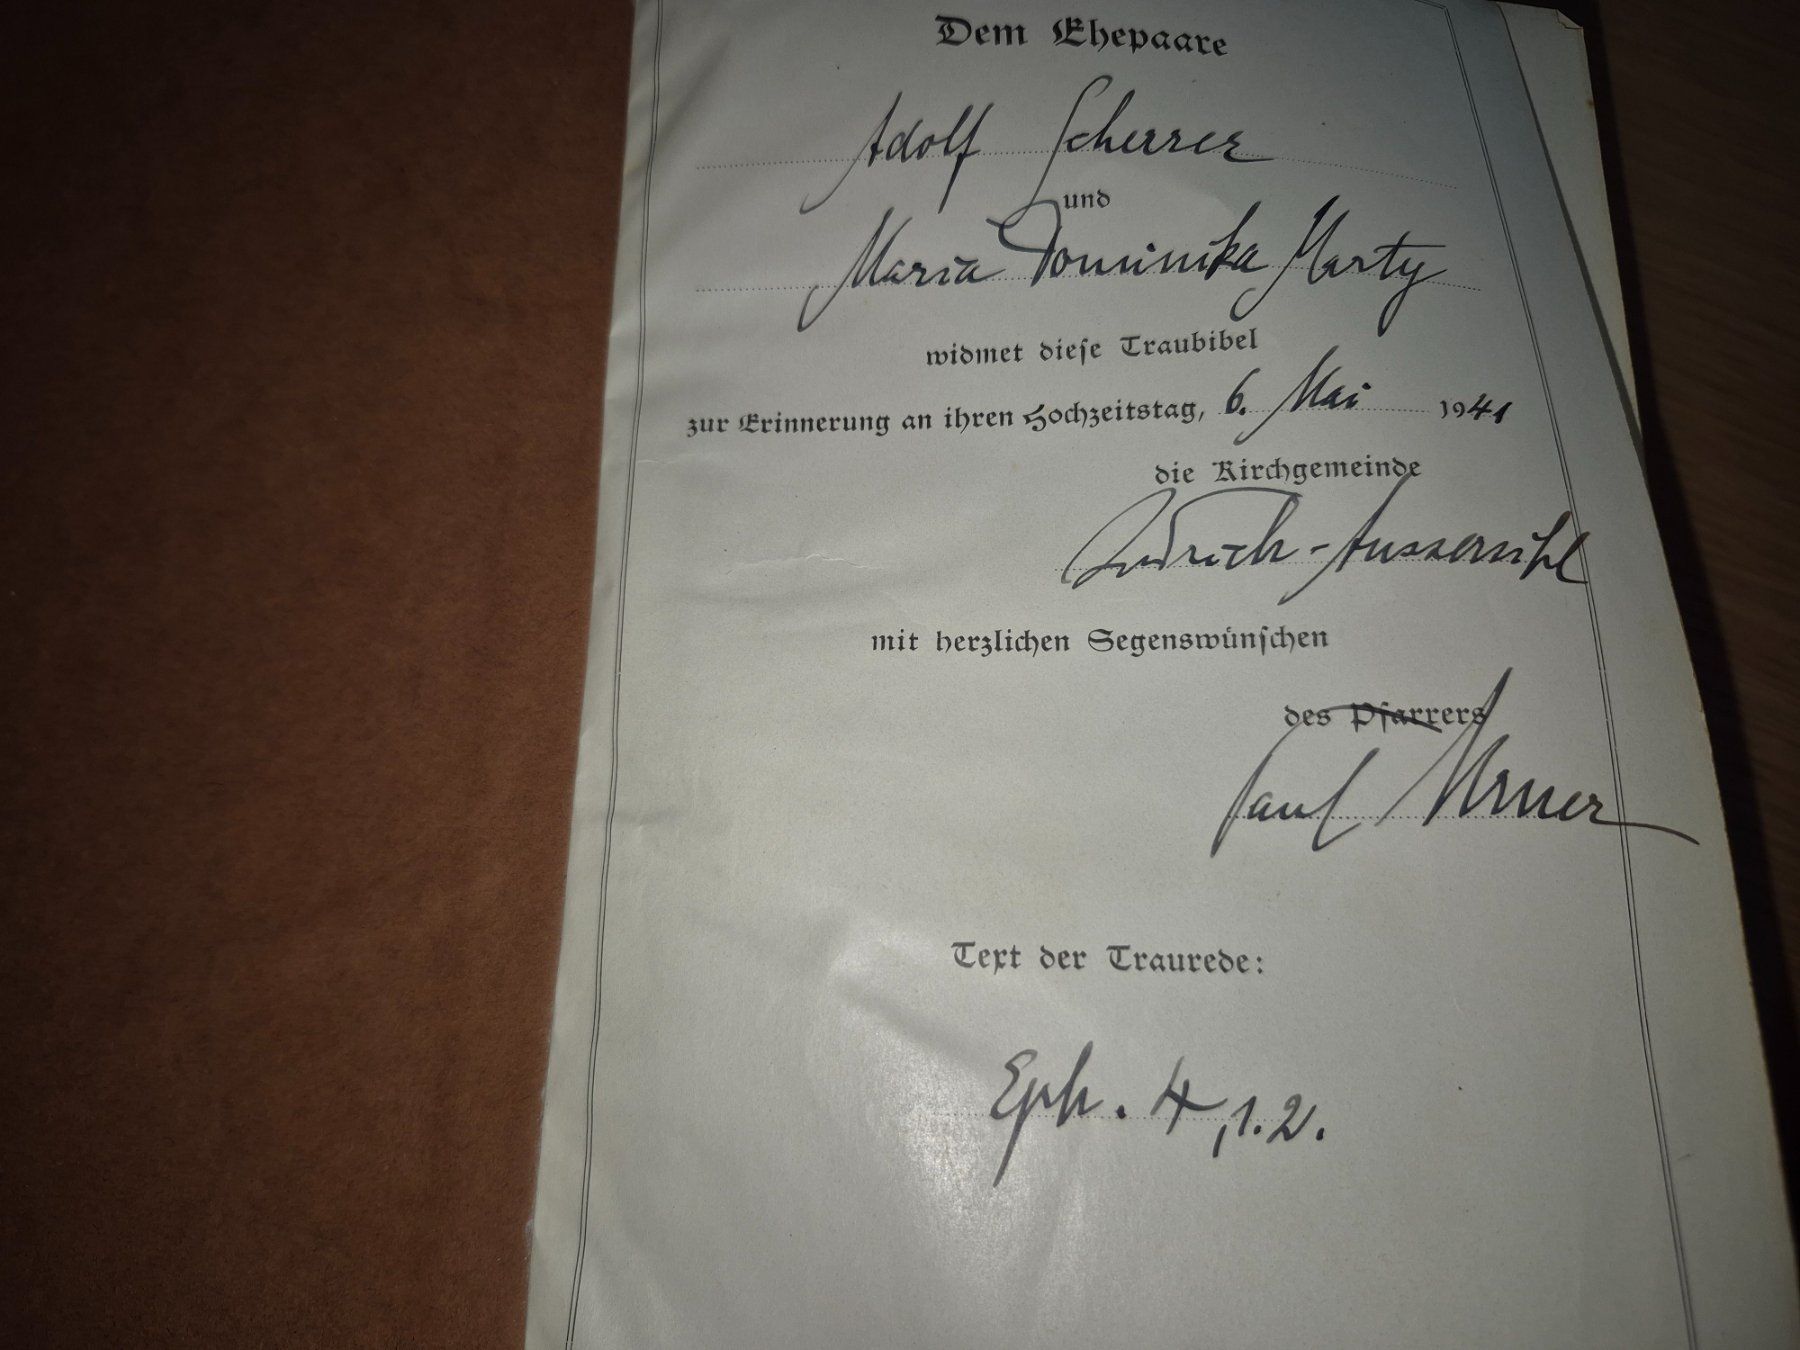 Dem Ehepaare
Adolf Scherrer
und
Maria Dominika Marty
widmet diese Traubibel
zur Erinnerung an ihren Hochzeitstag, 6. Mai 1941
die Kirchgemeinde
Zürich-Aussersihl
mit herzlichen Segenswünschen
des Pfarrers
Paul Urner
Text der Traurede:
Eph. 4, 1.2.